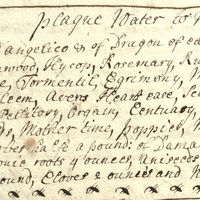 plague Water to
angelico & of Dragon of ea
wood, Hysop, Rosemary, R
Tormentil, Egrimony,
Avens Hearts ease, Sc
Pellitory, Orgain, Centuary
Mother time, poppies,
a pound: of Dama
roots 4 ounces, Aniseeds
ound, Cloves 2 ounces and